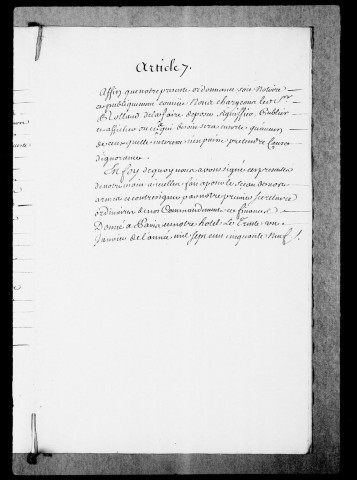 Article 7.
Affin que notre presente ordonnance soit Notoire
et publique nous avons Nous chargeons led. Sr
Rolland de la faire deposer signiffier publier
et afficher ou et a qui besoin sera ensorte qu'aucun
de ceux quelle interesse ne puisse pretendre Cause
d'ignorance.
En foy de quoy nous avons signé ces presentes
de notre main a icelles fait aposer le sceau de nos
armes et contresigner par notre premier secretaire
ordinaire de nos Commandemens et finances
Donné a Paris en notre hotel Le Trente un
Janvier de l'année mil sept cent cinquante Neuf